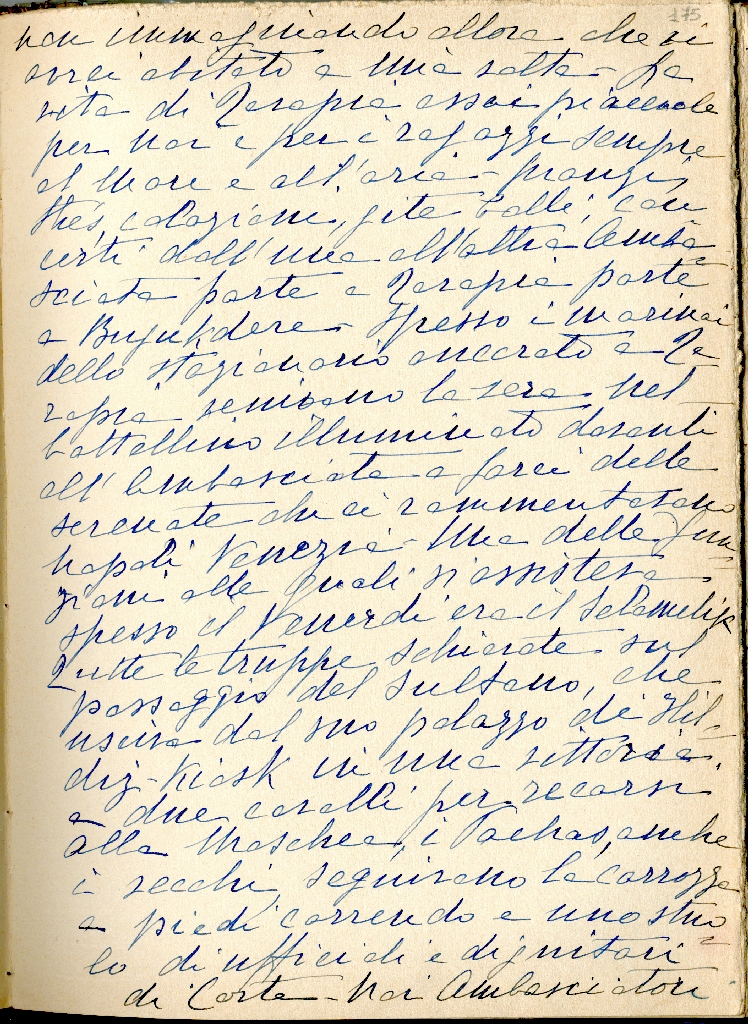 175
non immaginando allora che vi
avrei abitato a mia volta - La
vita di Terapia assai piacevole
per noi e per i ragazzi sempre
al mare e all'aria - pranzi,
thés, colazioni, gite balli, con
certi dall'una all'altra Amba
sciata parte a Terapia parte
a Bujukdere - Spesso i marinai
dello stazionario ancorato a Te
rapia venivano la sera nel
battellino illuminato davanti
all'Ambasciata a farci delle
serenate che ci rammentavano
Napoli Venezia - Una delle fun-
zioni alle quali si assisteva
spesso il Venerdi era il Selamlik
Tutte le truppe schierate sul
passaggio del Sultano, che
usciva dal suo palazzo di Hil-
diz-Kiosk in una vittoria
a due cavalli per recarsi
alla Moschea, i Pachas, anche
i vecchi, seguivano la carrozza
a piedi correndo e uno stuo-
lo di ufficiali e dignitari
di Corte - Noi Ambasciatori